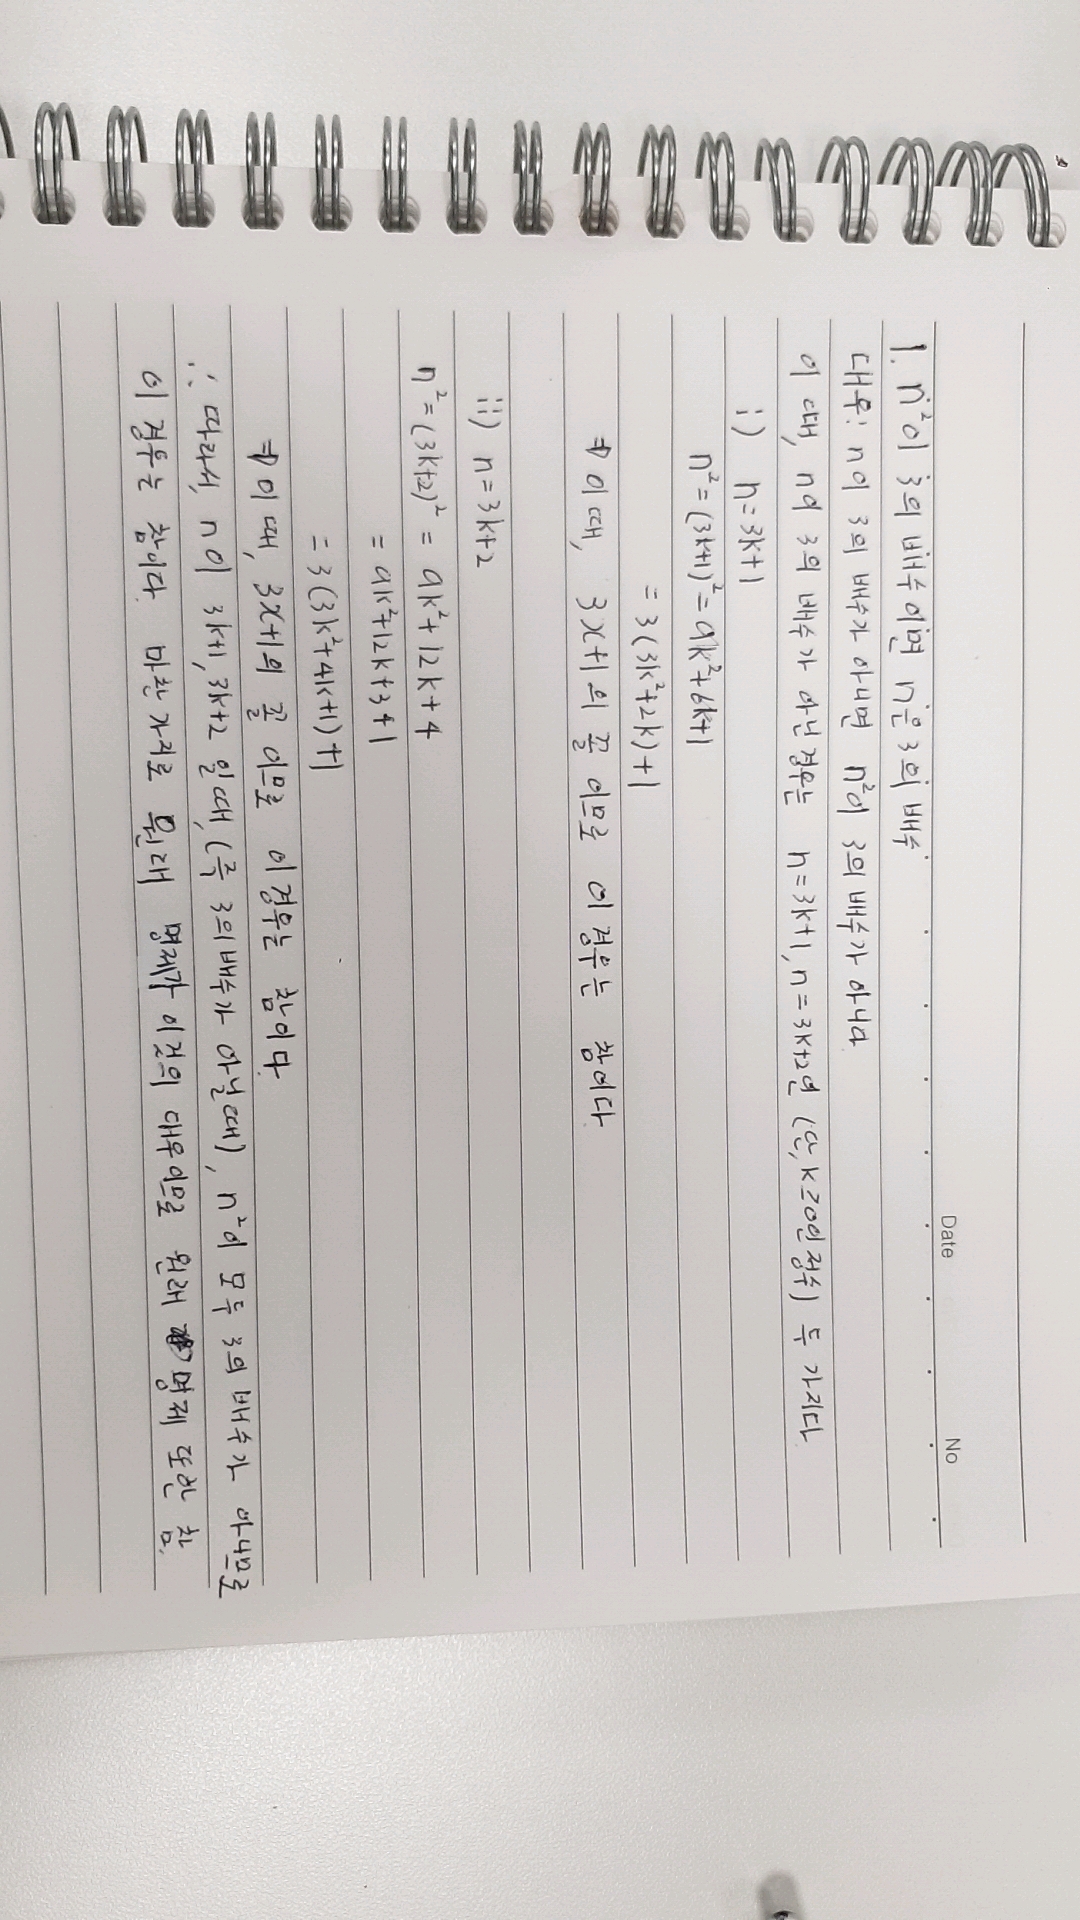 Date No
1. n²이 3의 배수이면 n은 3의 배수
대우: n이 3의 배수가 아니면 n²이 3의 배수가 아니다.
이 때, n이 3의 배수가 아닌경우는 n=3k+1, n=3k+2연 (단, k≥0인 정수) 두 가지다.
i) n=3k+1
n²=(3k+1)²=9k²+6k+1
=3(3k²+2k)+1
⇒ 이 때, 3x+1의 꼴 이므로 이 경우는 참이다.
ii) n=3k+2
n²=(3k+2)² = 9k²+12k+4
= 9k²+12k+3+1
= 3(3k²+4k+1)+1
⇒ 이 때, 3x+1의 꼴 이므로 이 경우는 참이다.
∴ 따라서, n이 3k+1, 3k+2 일 때, (즉 3의 배수가 아닐 때), n²이 모두 3의 배수가 아니므로
이 경우는 참이다. 마찬가지로 원래 명제가 이것의 대우이므로 원래 명제 또한 참.